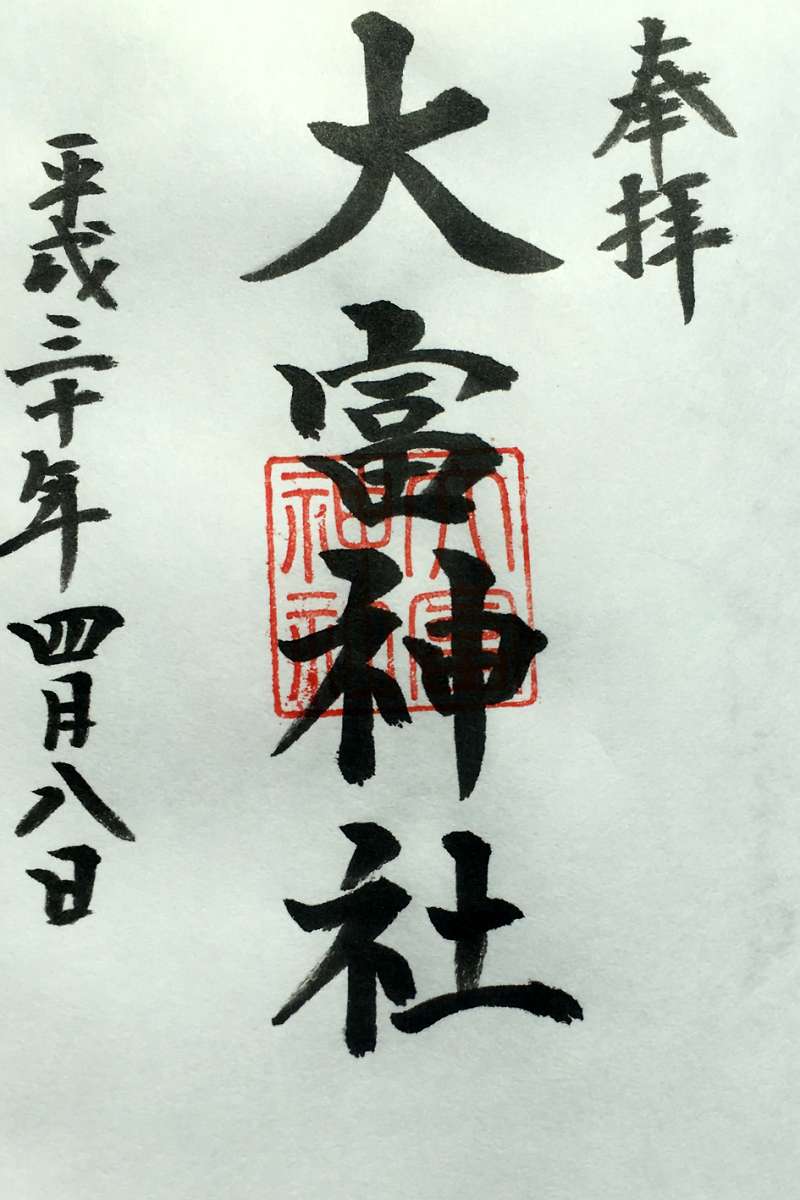 奉拝
大富神社
大富神社
平成三十年四月八日